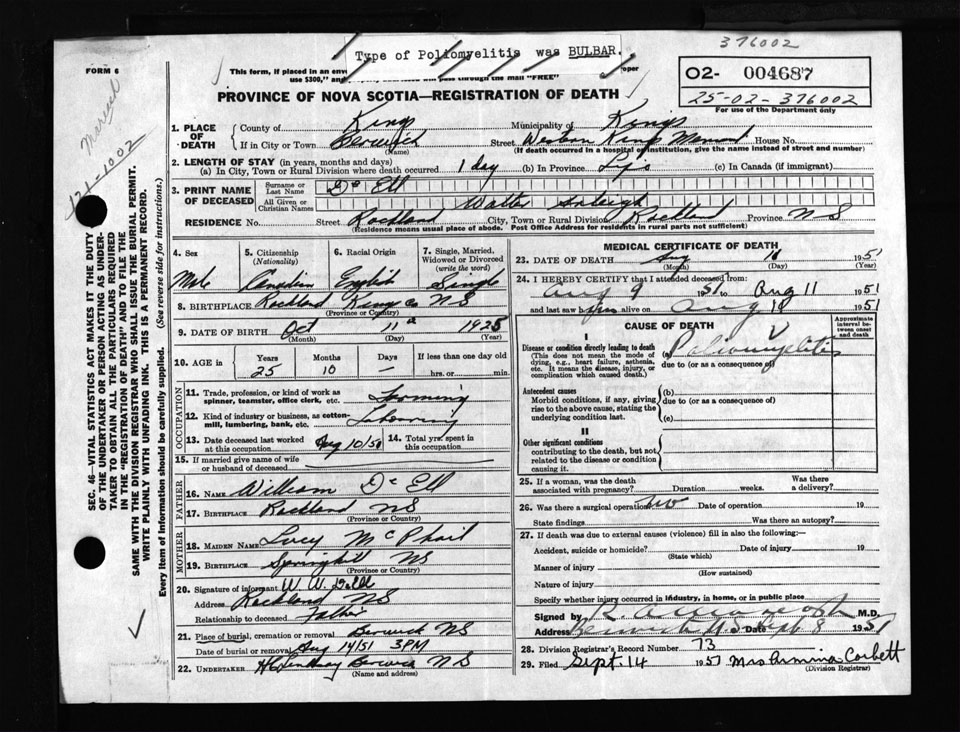 376002
Type of Poliomyelitis was BULBAR.
FORM 6
This form, if placed in an env
oper
use $300," and
pass through the mail "FREE"
PROVINCE OF NOVA SCOTIA—REGISTRATION OF DEATH
O2- 004687
25-02-376002
For use of the Department only
121-1002
SEC. 46—VITAL STATISTICS ACT MAKES IT THE DUTY
OF THE UNDERTAKER OR PERSON ACTING AS UNDER-
TAKER TO OBTAIN ALL THE PARTICULARS REQUIRED
IN THE "REGISTRATION OF DEATH" AND TO FILE THE
SAME WITH THE DIVISION REGISTRAR WHO SHALL ISSUE THE BURIAL PERMIT.
WRITE PLAINLY WITH UNFADING INK. THIS IS A PERMANENT RECORD.
Every item of Information should be carefully supplied. (See reverse side for instructions.)
1. PLACE OF DEATH
County of Kings Municipality of Kings
If in City or Town Berwick Street Western Kings House No.
(Name) (If death occurred in a hospital or institution, give the name instead of street and number)
2. LENGTH OF STAY (in years, months and days)
(a) In City, Town or Rural Division where death occurred 1 day (b) In Province Life (c) In Canada (if immigrant)
3. PRINT NAME OF DECEASED
Surname or Last Name
All Given or Christian Names Walter
RESIDENCE No. Street Rockland City, Town or Rural Division Rockland Province NS
(Residence means usual place of abode. Post Office Address for residents in rural parts not sufficient)
4. Sex 5. Citizenship (Nationality) 6. Racial Origin 7. Single, Married, Widowed or Divorced (write the word)
Male Canadian English Single
8. BIRTHPLACE Rockland Kings Co NS
(Province or Country)
9. DATE OF BIRTH Oct 11th 1925
(Month) (Day) (Year)
10. AGE in Years Months Days If less than one day old
25 10 — hrs. or min.
OCCUPATION
11. Trade, profession, or kind of work as spinner, teamster, office clerk, etc. Farming
12. Kind of industry or business, as cotton-mill, lumbering, bank, etc. Laboring
13. Date deceased last worked at this occupation Aug 10/51 14. Total yrs. spent in this occupation
15. If married give name of wife or husband of deceased
FATHER
16. NAME William
17. BIRTHPLACE Rockland NS
(Province or Country)
MOTHER
18. MAIDEN NAME Lucy McPhail
19. BIRTHPLACE Springhill NS
(Province or Country)
20. Signature of informant W. W.
Address Rockland NS
Relationship to deceased Father
21. Place of burial, cremation or removal Berwick NS
Date of burial or removal Aug 14/51 3PM
22. UNDERTAKER Berwick NS
(Name and address)
MEDICAL CERTIFICATE OF DEATH
23. DATE OF DEATH Aug 1951
(Month) (Day) (Year)
24. I HEREBY CERTIFY that I attended deceased from:
Aug 9 1951 to Aug 11 1951
and last saw him alive on Aug 1951
CAUSE OF DEATH
Approximate interval between onset and death
I
Disease or condition directly leading to death
(This does not mean the mode of dying, e.g., heart failure, asthenia, etc. It means the disease, injury, or complication which caused death.)
(a) Poliomyelitis
due to (or as a consequence of)
Antecedent causes
Morbid conditions, if any, giving rise to the above cause, stating the underlying condition last.
(b)
due to (or as a consequence of)
(c)
II
Other significant conditions
contributing to the death, but not related to the disease or condition causing it.
25. If a woman, was the death associated with pregnancy? Duration weeks. Was there a delivery?
26. Was there a surgical operation? No Date of operation 19
State findings Was there an autopsy?
27. If death was due to external causes (violence) fill in also the following:—
Accident, suicide or homicide? Date of injury 19
(State which)
Manner of injury
(How sustained)
Nature of injury
Specify whether injury occurred in industry, in home, or in public place
Signed by M.D.
Address NS Date Sept 8 1951
28. Division Registrar's Record Number 73
29. Filed Sept. 14 1951 Mrs Armina Corbett
(Division Registrar)